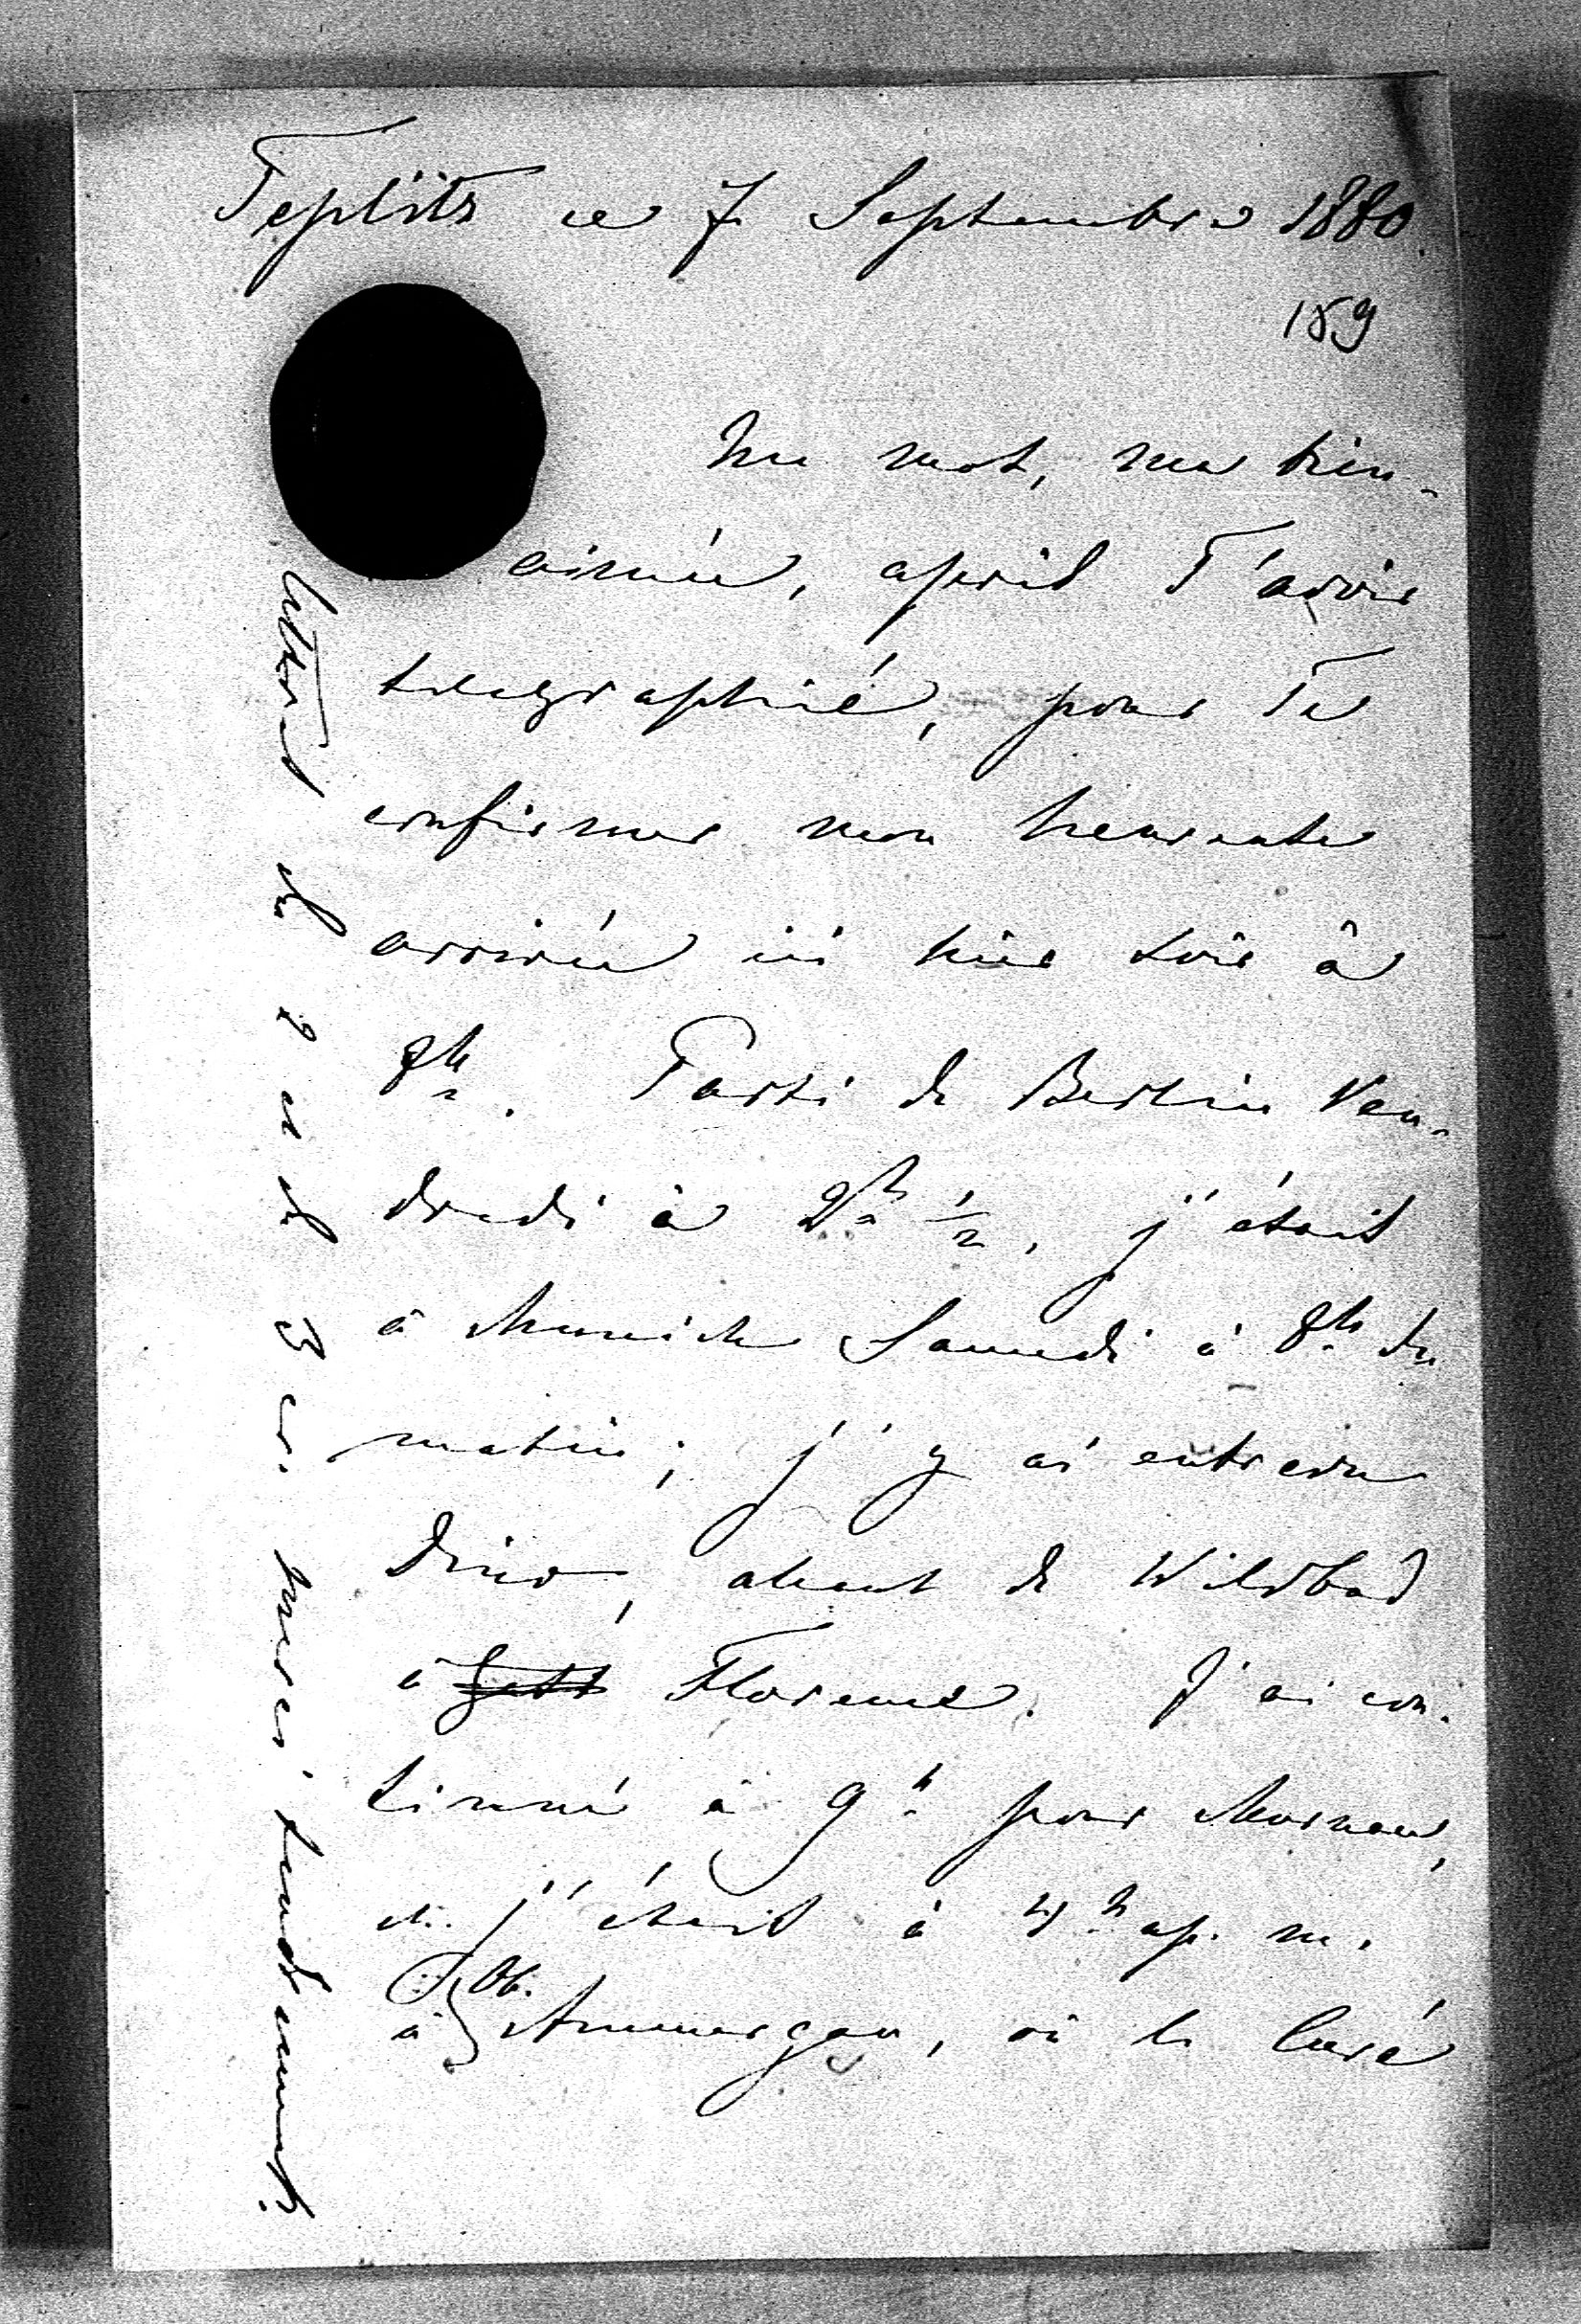 Teplitz ce 7 Septembre 1880.
189
Un mot, ma bien-
aimée, après T'avoir
telegraphié, pour Te
confirmer mon heureuse
arrivée ici hier soir à
8h. Parti de Berlin Ven-
dredi à 2h ½, j'étais
à Munich Samedi à 8h du
matin; j'y ai entrevu
Dino, allant de Wildbad
à Florence. J'ai con-
tinué à 9h pour Murnau,
et j'étais à 4h ap. m.
à Ob. Ammergau, où le Curé
lettres du 2 et du 3 cr. merci tendrement.